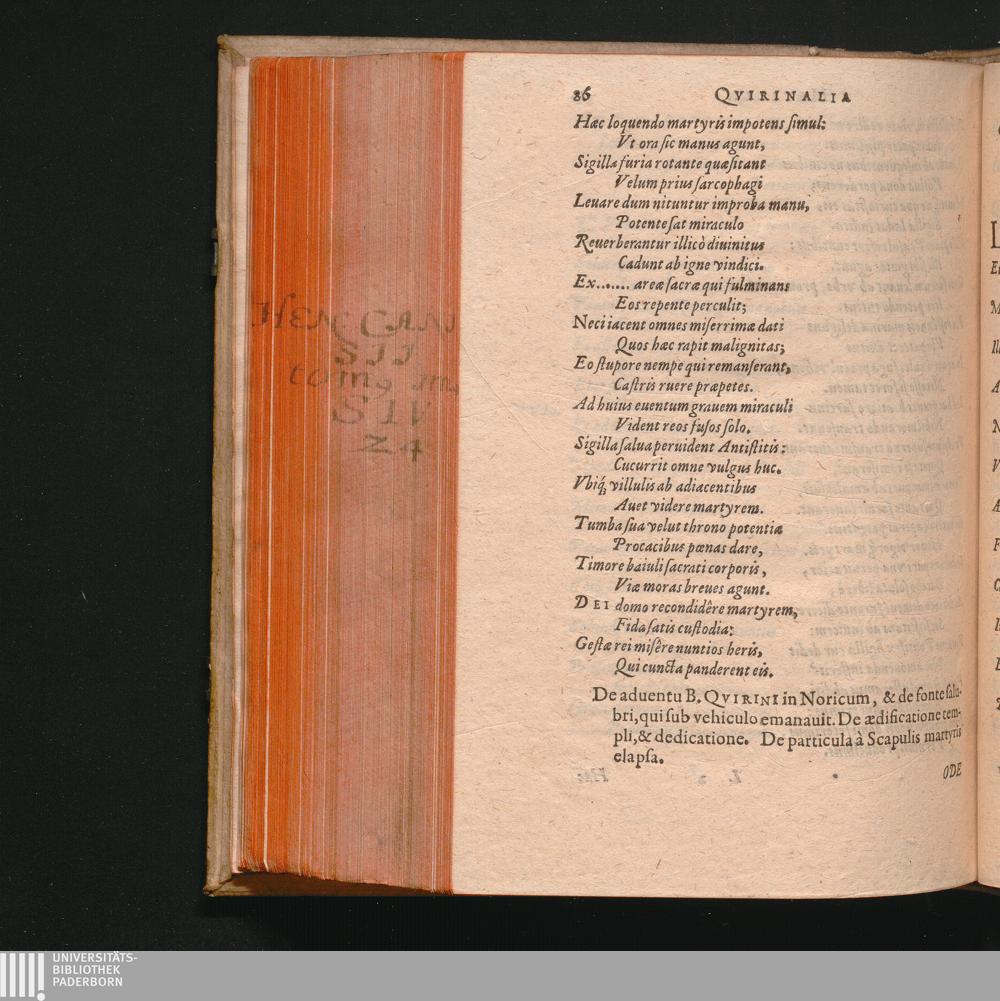 86 QVIRINALIA
Hæc loquendo martyris impotens ſimul:
Vt ora ſic manus agunt,
Sigilla furia rotante quæſitant
Velum prius ſarcophagi
Leuare dum nituntur improba manu,
Potente ſat miraculo
Reuerberantur illicò diuinitus
Cadunt ab igne vindici.
Ex....... areæ ſacræ qui fulminans
Eos repente perculit;
Neci iacent omnes miſerrimæ dati
Quos hæc rapit malignitas;
Eo ſtupore nempe qui remanſerant,
Caſtris ruere præpetes.
Ad huius euentum grauem miraculi
Vident reos fuſos ſolo.
Sigilla ſalua peruident Antiſtitis:
Cucurrit omne vulgus huc.
Vbiq́ villulis ab adiacentibus
Auet videre martyrem.
Tumba ſua velut throno potentia
Procacibus pœnas dare,
Timore baiuli ſacrati corporis,
Viæ moras breues agunt.
DEI domo recondidêre martyrem,
Fida ſatis cuſtodia:
Geſtæ rei miſêre nuntios heris,
Qui cuncta panderent eis.
De aduentu B. QVIRINI in Noricum, & de fonte ſalu-
bri, qui ſub vehiculo emanauit. De ædificatione tem-
pli, & dedicatione. De particula à Scapulis martyris
elapſa.
ODE
HEN CANI
SII
tom9
24
UNIVERSITÄTS-
BIBLIOTHEK
PADERBORN